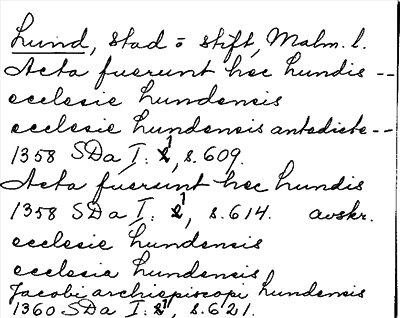 Lund, stad o stift, Malm. l.
Acta fuerunt hec Lundis --
ecclesie Lundensis
ecclesie Lundensis antedicte --
1358 SDa I: 1, s. 609.
Acta fuerunt hec Lundis
1358 SDa I: 1, s. 614. avskr.
ecclesie Lundensis
ecclesia Lundensis
Jacobi archiepiscopi Lundensis
1360 SDa I: 1, s. 621.